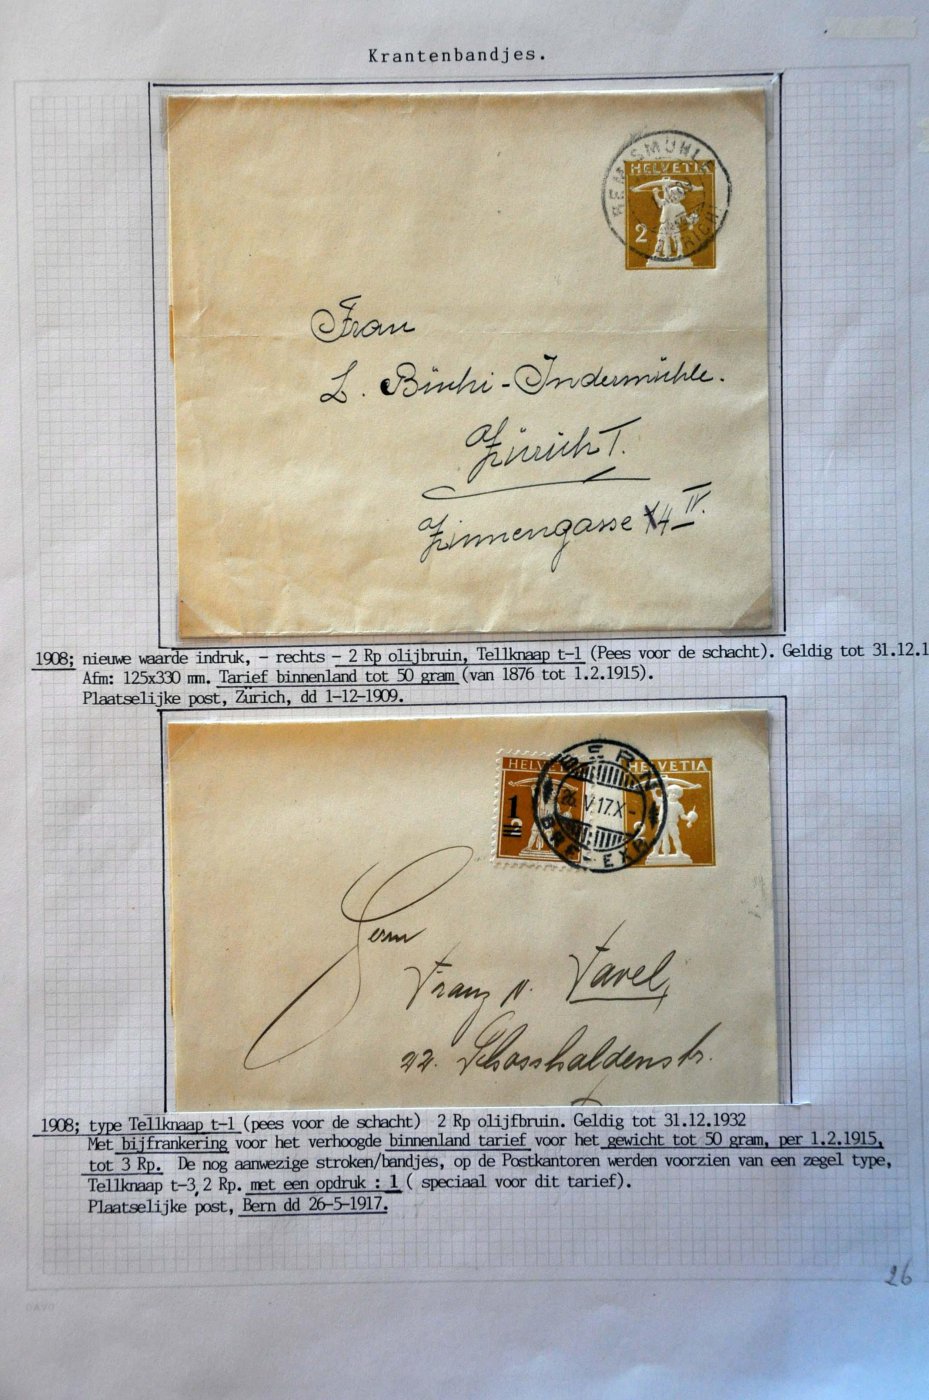 Krantenbandjes.
HELVETIA
2
ZÜRICH
Frau
L. Büchi-Indermühle.
Zürich I.
Zinnengasse 4 IV.
1908; nieuwe waarde indruk, - rechts - 2 Rp olijbruin, Tellknaap t-1 (Pees voor de schacht). Geldig tot 31.12.1
Afm: 125x330 mm. Tarief binnenland tot 50 gram (van 1876 tot 1.2.1915).
Plaatselijke post, Zürich, dd 1-12-1909.
HELVETIA
BERN
26.V.17.X-
BRF-EXP.
1
Herrn
Franz v. Tavel,
22. Schosshaldenstr.
1908; type Tellknaap t-1 (pees voor de schacht) 2 Rp olijfbruin. Geldig tot 31.12.1932
Met bijfrankering voor het verhoogde binnenland tarief voor het gewicht tot 50 gram, per 1.2.1915,
tot 3 Rp. De nog aanwezige stroken/bandjes, op de Postkantoren werden voorzien van een zegel type,
Tellknaap t-3, 2 Rp. met een opdruk : 1 ( speciaal voor dit tarief).
Plaatselijke post, Bern dd 26-5-1917.
26
DAVO